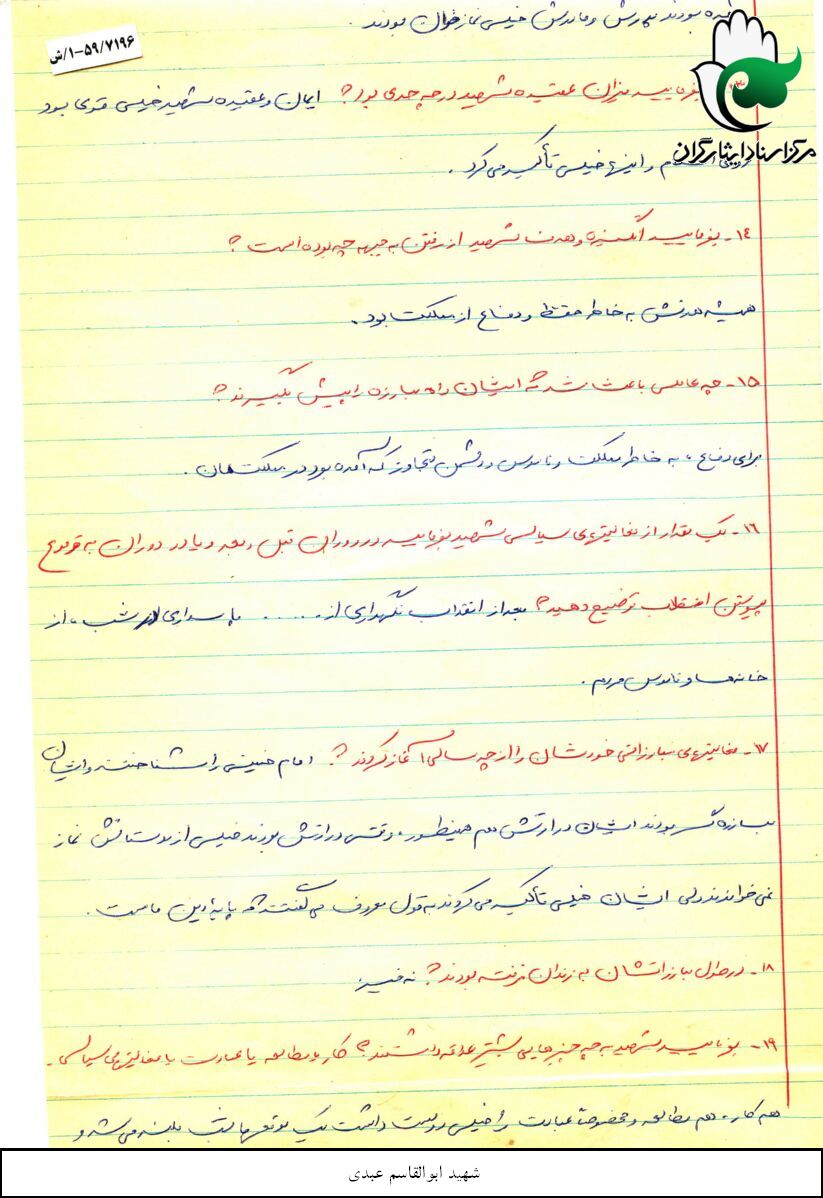 شده بودند پدرش و مادرش خیلی نمازخوان بودند.
۵۹/۷۱۹۶-۱/ش
بفرمایید میزان عقیده شهید در چه حدی بود؟ ایمان و عقیده شهید خیلی قوی بود
مرکز اسناد ایثارگران
و اینها خیلی تأکید می کرد.
۱۴- بفرمایید انگیزه و هدف شهید از رفتن به جبهه چه بوده است؟
همیشه هدفش به خاطر حفظ و دفاع از مملکت بود.
۱۵- چه عاملی باعث شد که ایشان راه مبارزه را پیش بگیرند؟
برای دفاع، به خاطر مملکت و ناموس و دشمن متجاوز که آمده بود در مملکتمان.
۱۶- یک مقدار از فعالیتهای سیاسی شهید بفرمایید در دوران قبل و بعد و یا در دوران به وقوع
پیوستن انقلاب توضیح دهید؟ بعد از انقلاب نگهداری از ...... پاسداری در شب، از
خانه‌ها و ناموس مردم.
۱۷- فعالیتهای مبارزاتی خودشان را از چه سالی آغاز کردند؟ امام خمینی را شناختند و ایشان
مبارزه گر بودند ایشان در ارتش هم همینطور، وقتی در ارتش بودند خیلی از دوستانش نماز
نمی خواندند ولی ایشان خیلی تأکید می کردند به قول معروف می گفت که پایه دین ماست.
۱۸- در طول مبارزاتشان به زندان نرفته بودند؟ نه خیر.
۱۹- بفرمایید شهید به چه چیزهایی بیشتر علاقه داشتند؟ کار یا مطالعه یا عبادت یا فعالیتهای سیاسی.
هم کار، هم مطالعه و مخصوصاً عبادت را خیلی دوست داشت یک موقعها شب بلند می شد و
شهید ابوالقاسم عبدی